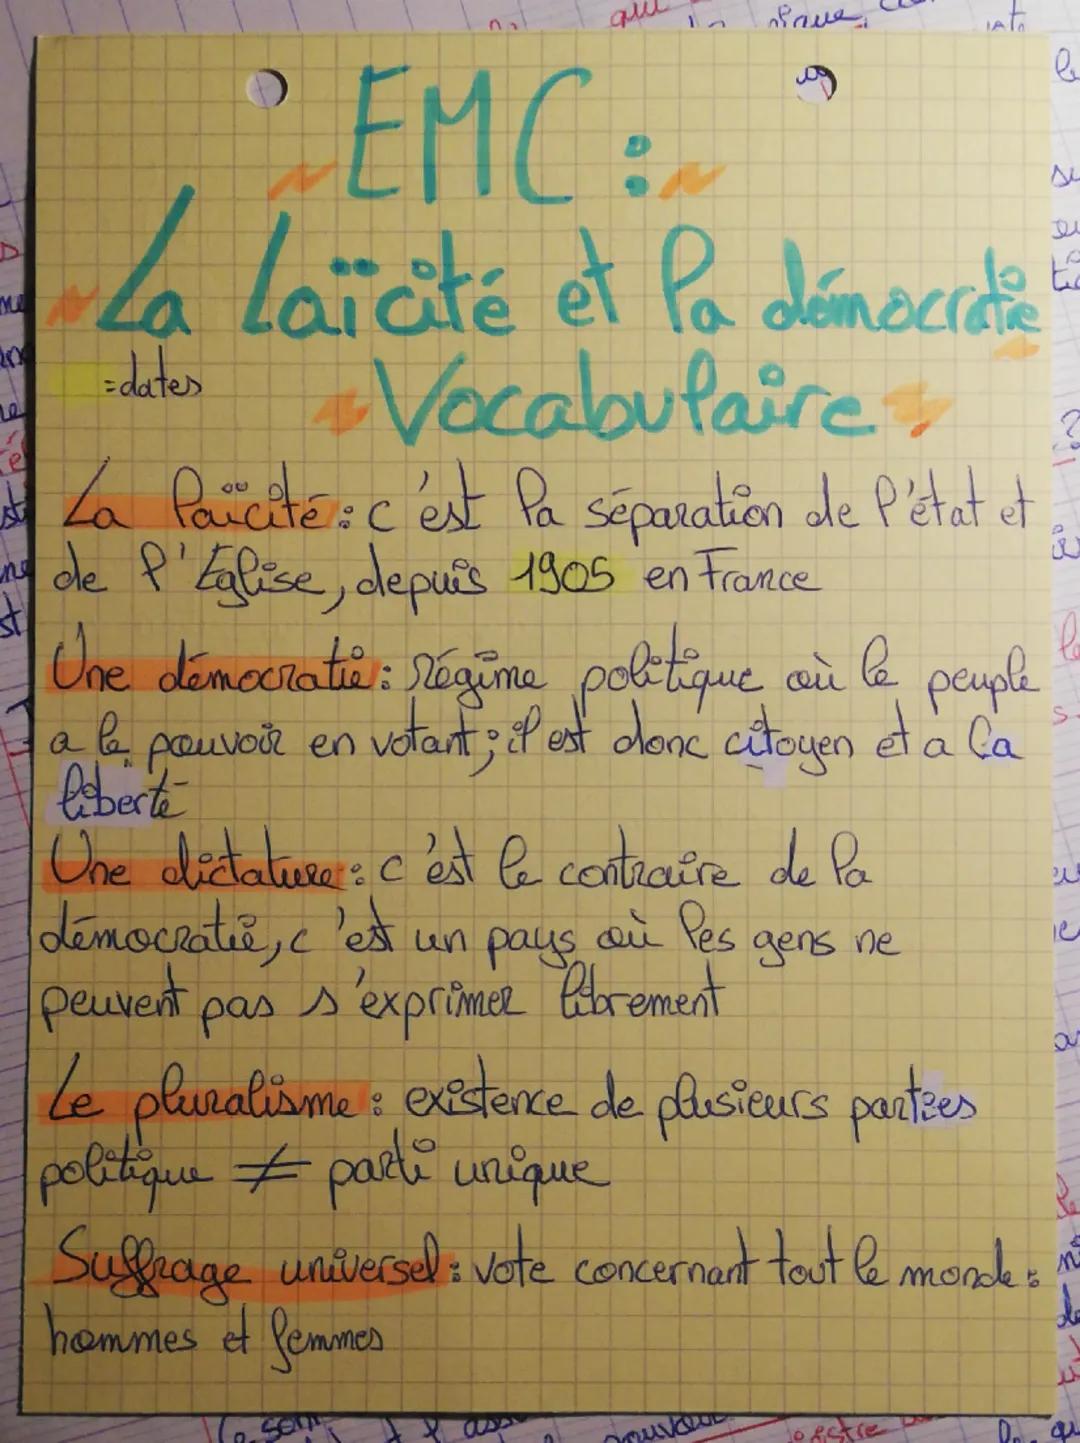 EMC :
La Laïcité et la démocratie
= dates
Vocabulaire
La laïcité : c'est la séparation de l'état et
de l'Eglise, depuis 1905 en France
Une démocratie : Régime politique où le peuple
a le pouvoir en votant ; il est donc citoyen et a la
liberté
Une dictature : c'est le contraire de la
démocratie, c'est un pays où les gens ne
peuvent pas s'exprimer librement
Le pluralisme : existence de plusieurs parties
politique ≠ parti unique
Suffrage universel : vote concernant tout le monde :
hommes et femmes